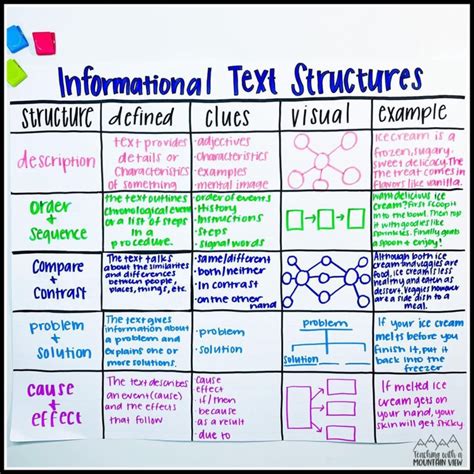 Informational Text Structures
structure defined clues visual example
description
text provides
details or
characteristics
of something
· adjectives
· characteristics
· examples
· mental image
Ice cream is a
frozen, sugary,
sweet delicacy. The
treat comes in
flavors like vanilla.
order
+
sequence
the text outlines
chronological event
or a list of steps
in a
procedure.
· order of events
· History
· Instructions
· Steps
· signal words
delicious ice
cream? First scoop it
into the bowl. Then top
it with goodies like
sprinkles. Finally grab
a spoon + enjoy!
Compare
+
Contrast
The text talks
about the similarities
and differences
between people,
places, things, etc.
· same/different
· both/neither
· In contrast
· on the other
hand
Although both ice
cream and veggies are
food, ice cream is less
healthy and eaten as
dessert. Veggies however
are a side dish to a
meal.
problem
+
solution
The text gives
information about
a problem and
explains one or
more solutions.
· problem
· solution
problem
solution
If your ice cream
melts before you
finish it, put it
back into the
freezer
cause
+
effect
The text describes
an event (cause)
and the effects
that follow
cause
effect
· if/then
· because
· as a result
· due to
If melted ice
cream gets on
your hand, your
skin will get sticky
teaching with a
MOUNTAIN VIEW